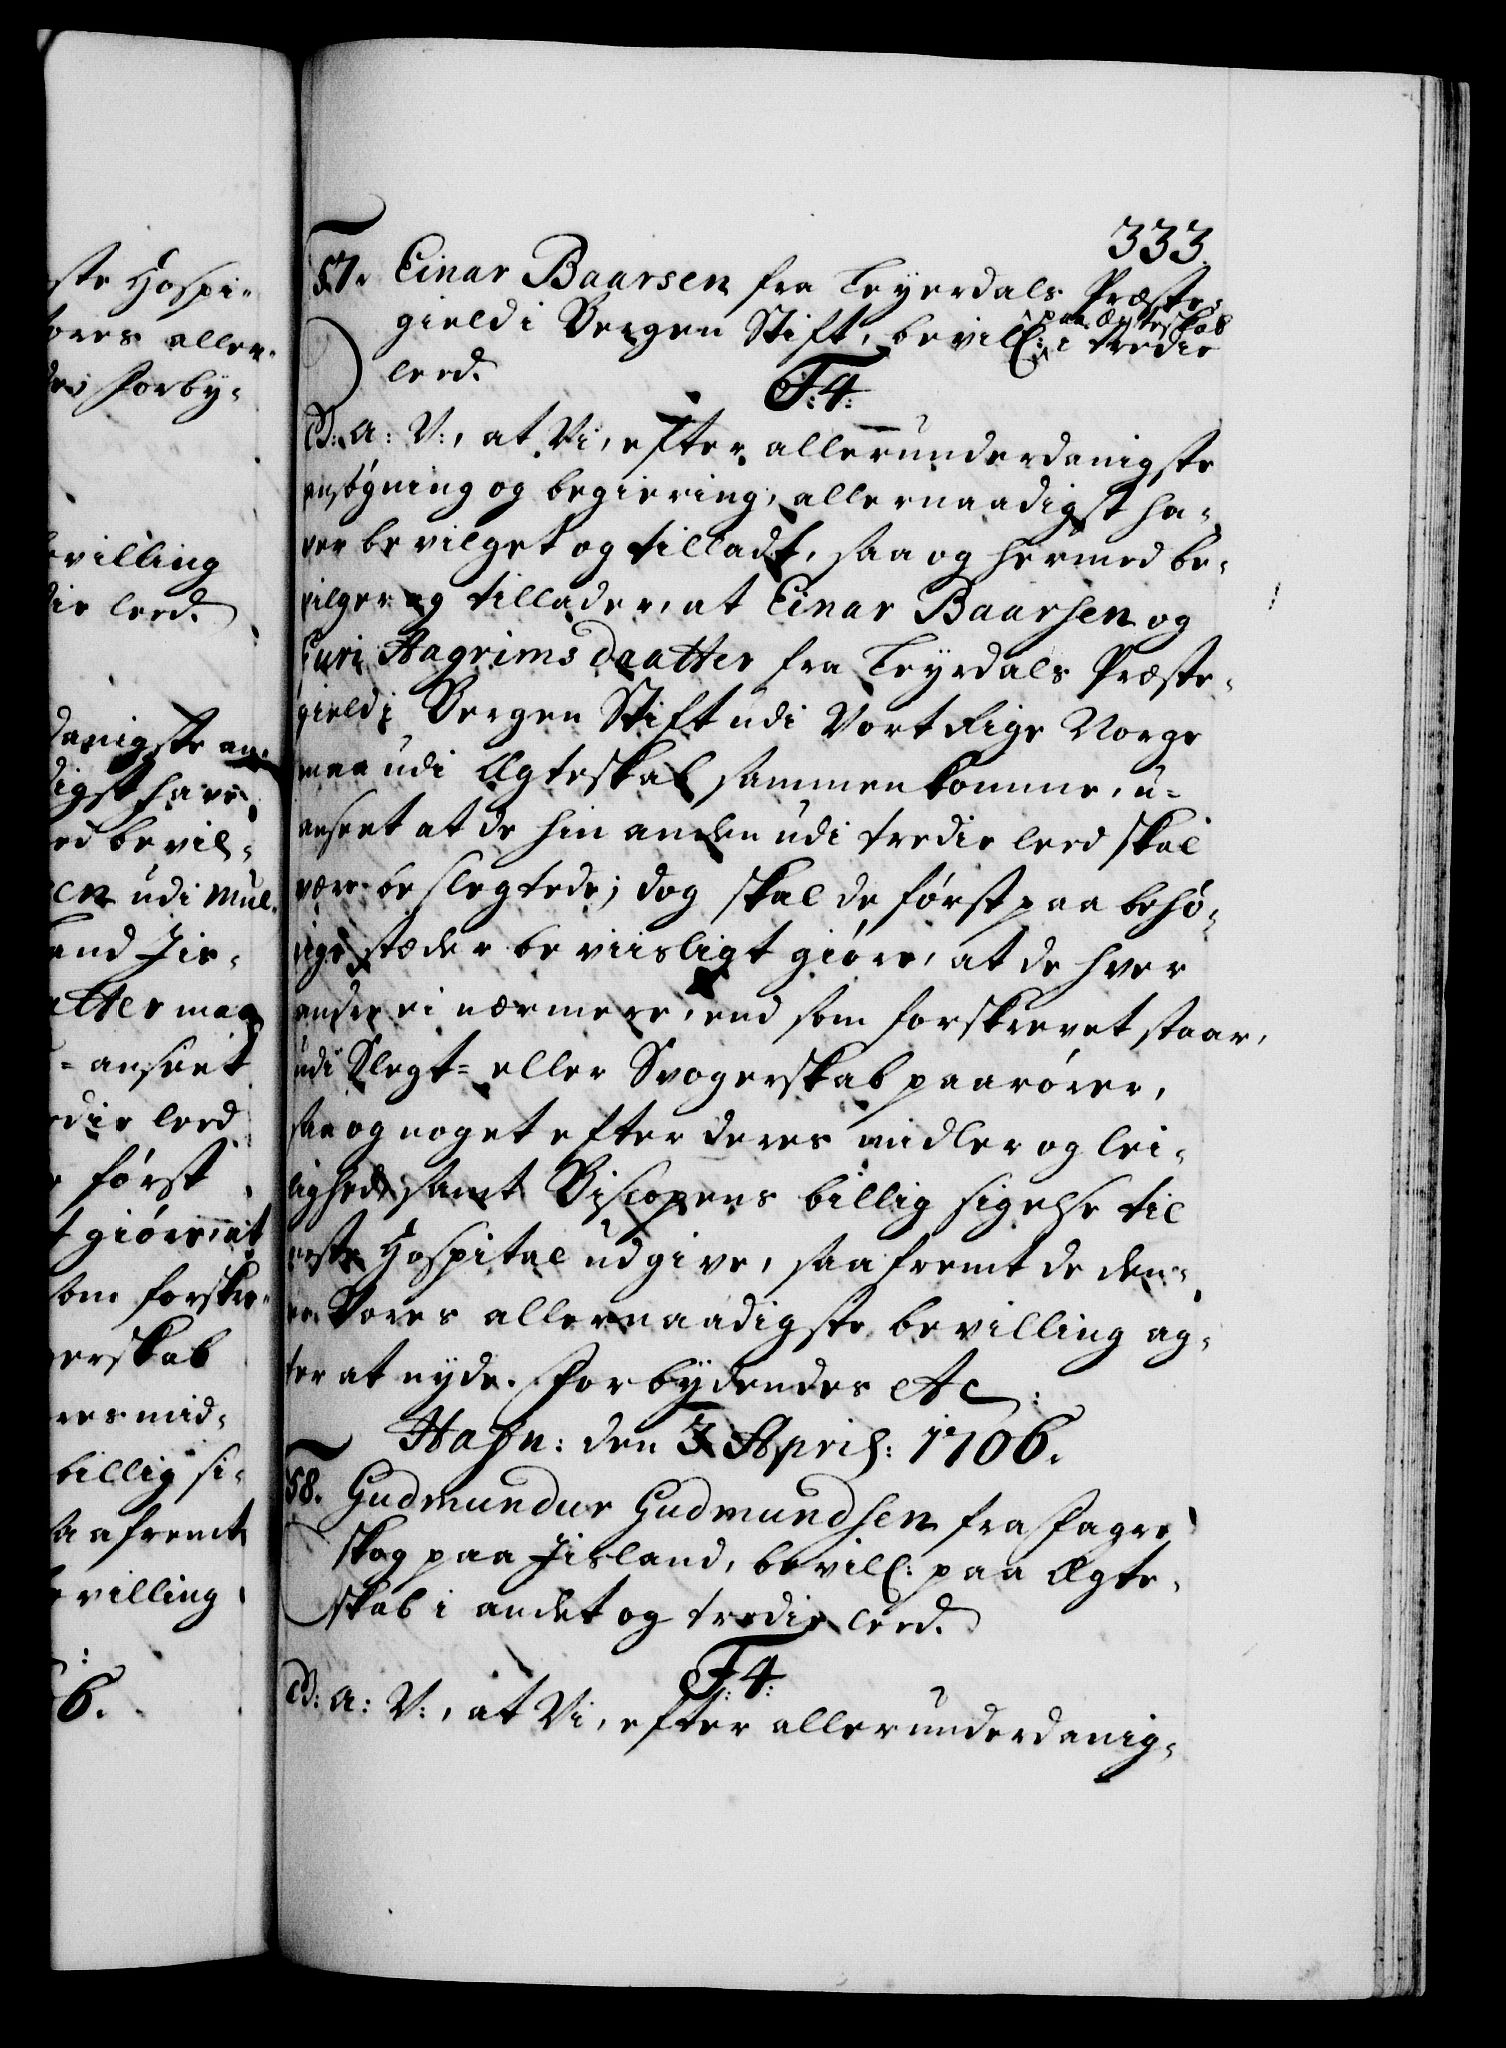 333.
57. Einar Baarsen fra Leyerdals Præste-
gield i Bergen Stift, bevill: paa Ægteskab i tredie
leed.
F:4:
G: A: V:, at Vi, efter allerunderdanigste
ansøgning og begiering, allernaadigst ha-
ver bevilget og tilladt, saa og hermed be-
vilger og tillader, at Einar Baarsen og
Guri Aagrims daatter fra Leyrdals Præste-
gield i Bergen Stift udi Vort Rige Norge
maa udi Ægteskab sammenkomme, u-
anseet at de hin anden udi tredie leed skal
være beslegtede; dog skal de først paa behø-
rige stæder beviisligt giøre, at de hver
andre ei nærmere, end som forskrevet staar,
udi Slegt- eller Svogerskab paarører,
saa og noget efter deres midler og lei-
lighed, samt Biscopens billig sigelse til
neste Hospital udgive, saafremt de den-
ne Vores allernaadigste bevilling ag-
ter at nyde. Forbydendes etc:
Hafn: den 3 April: 1706.
58. Gudmundur Gudmundsen fra Fagre
skog paa Jisland, bevill: paa Ægte-
skab i andet og tredie leed.
F:4:
G: A: V:, at Vi, efter allerunderdanig-